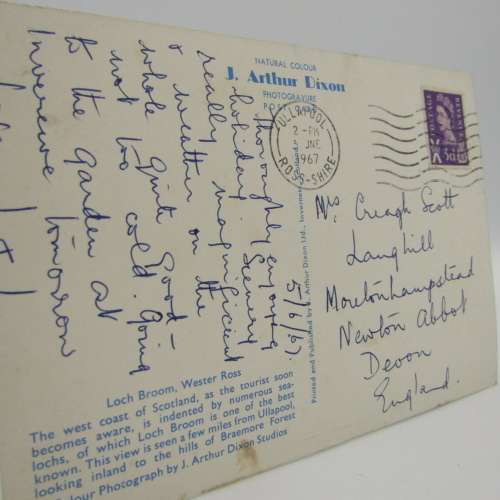 NATURAL COLOUR
J. Arthur Dixon
PHOTOGRAVURE
ULLAPOOL
2 - PM
JNE
1967
ROSS-SHIRE
POSTAGE
REVENUE
3D
5/6/67
thoroughly enjoying
holiday. Scenery
really magnificient
& weather on the
whole quite good -
not too cold. Going
to the garden at
Inverewe tomorrow
Mrs Creagh Scott
Langhill
Moretonhampstead
Newton Abbot
Devon
England.
Printed and Published by J. Arthur Dixon Ltd., Inverness, Scotland
Loch Broom, Wester Ross
The west coast of Scotland, as the tourist soon
becomes aware, is indented by numerous sea-
lochs, of which Loch Broom is one of the best
known. This view is seen a few miles from Ullapool,
looking inland to the hills of Braemore Forest
Colour Photograph by J. Arthur Dixon Studios